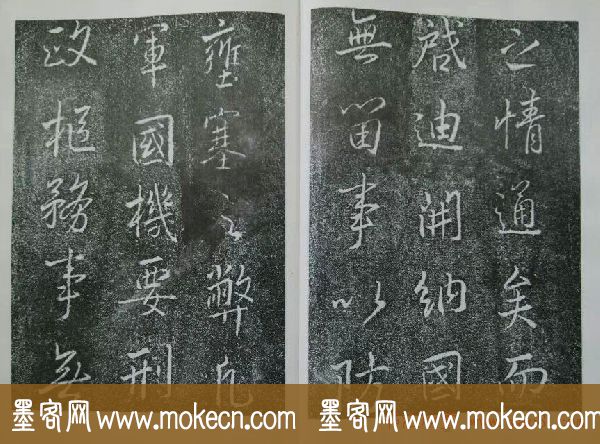 之情通矣而
啟迪開納國
無留事以防
壅塞之弊凡
軍國機要刑
政樞務事無
墨客网 www.mokecn.com 墨客网 www.mokecn.com